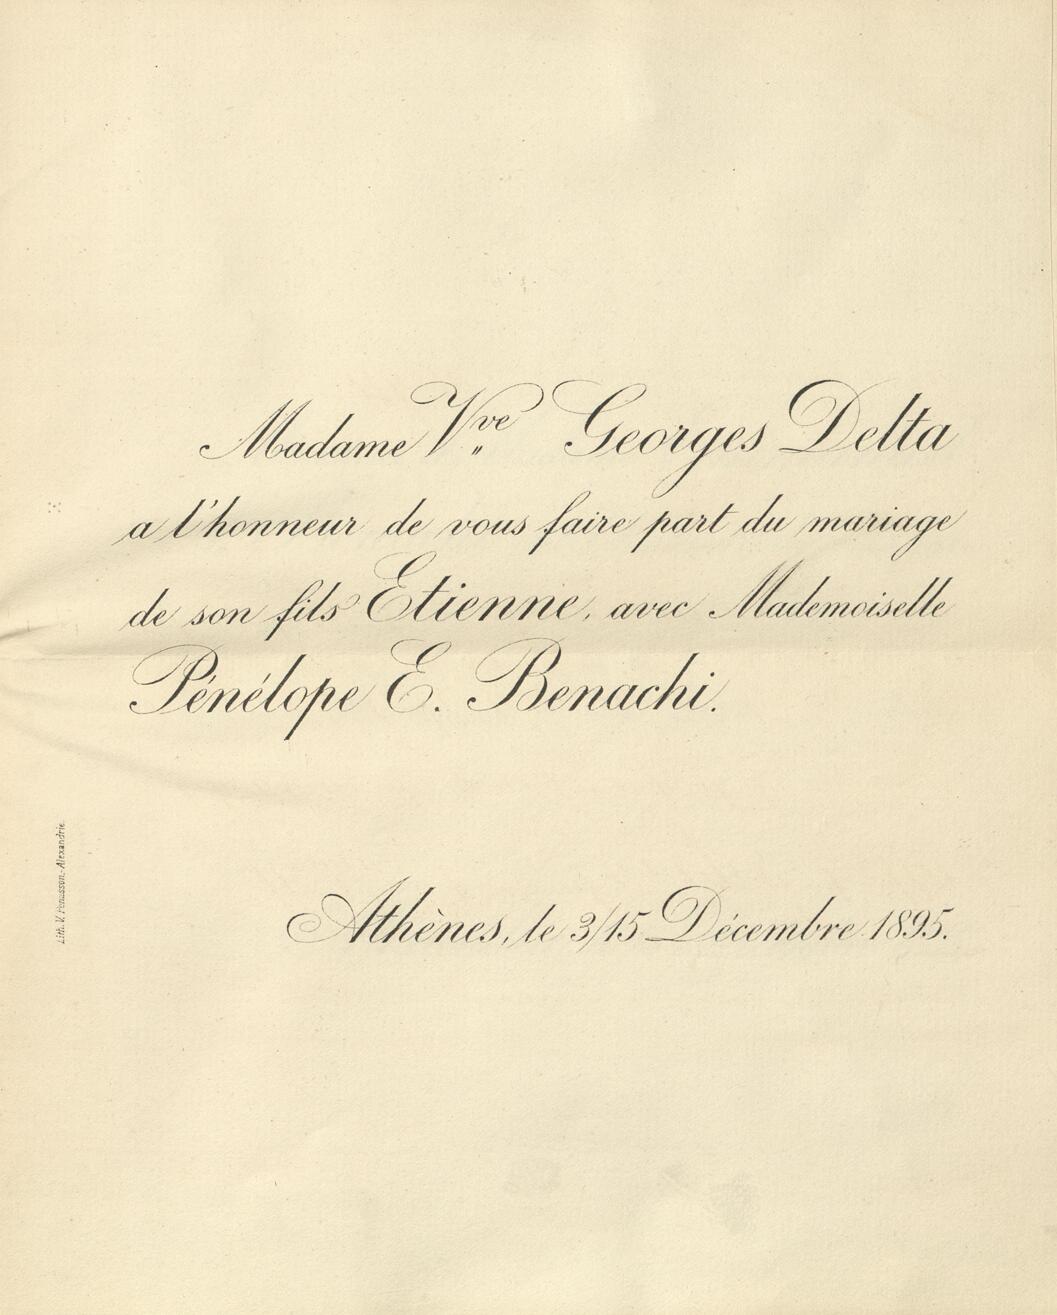 Madame Vve Georges Delta
a l'honneur de vous faire part du mariage
de son fils Etienne, avec Mademoiselle
Pénélope E. Benachi.
Athènes, le 3/15 Décembre 1895.
Lith. V. Penasson.- Alexandrie.